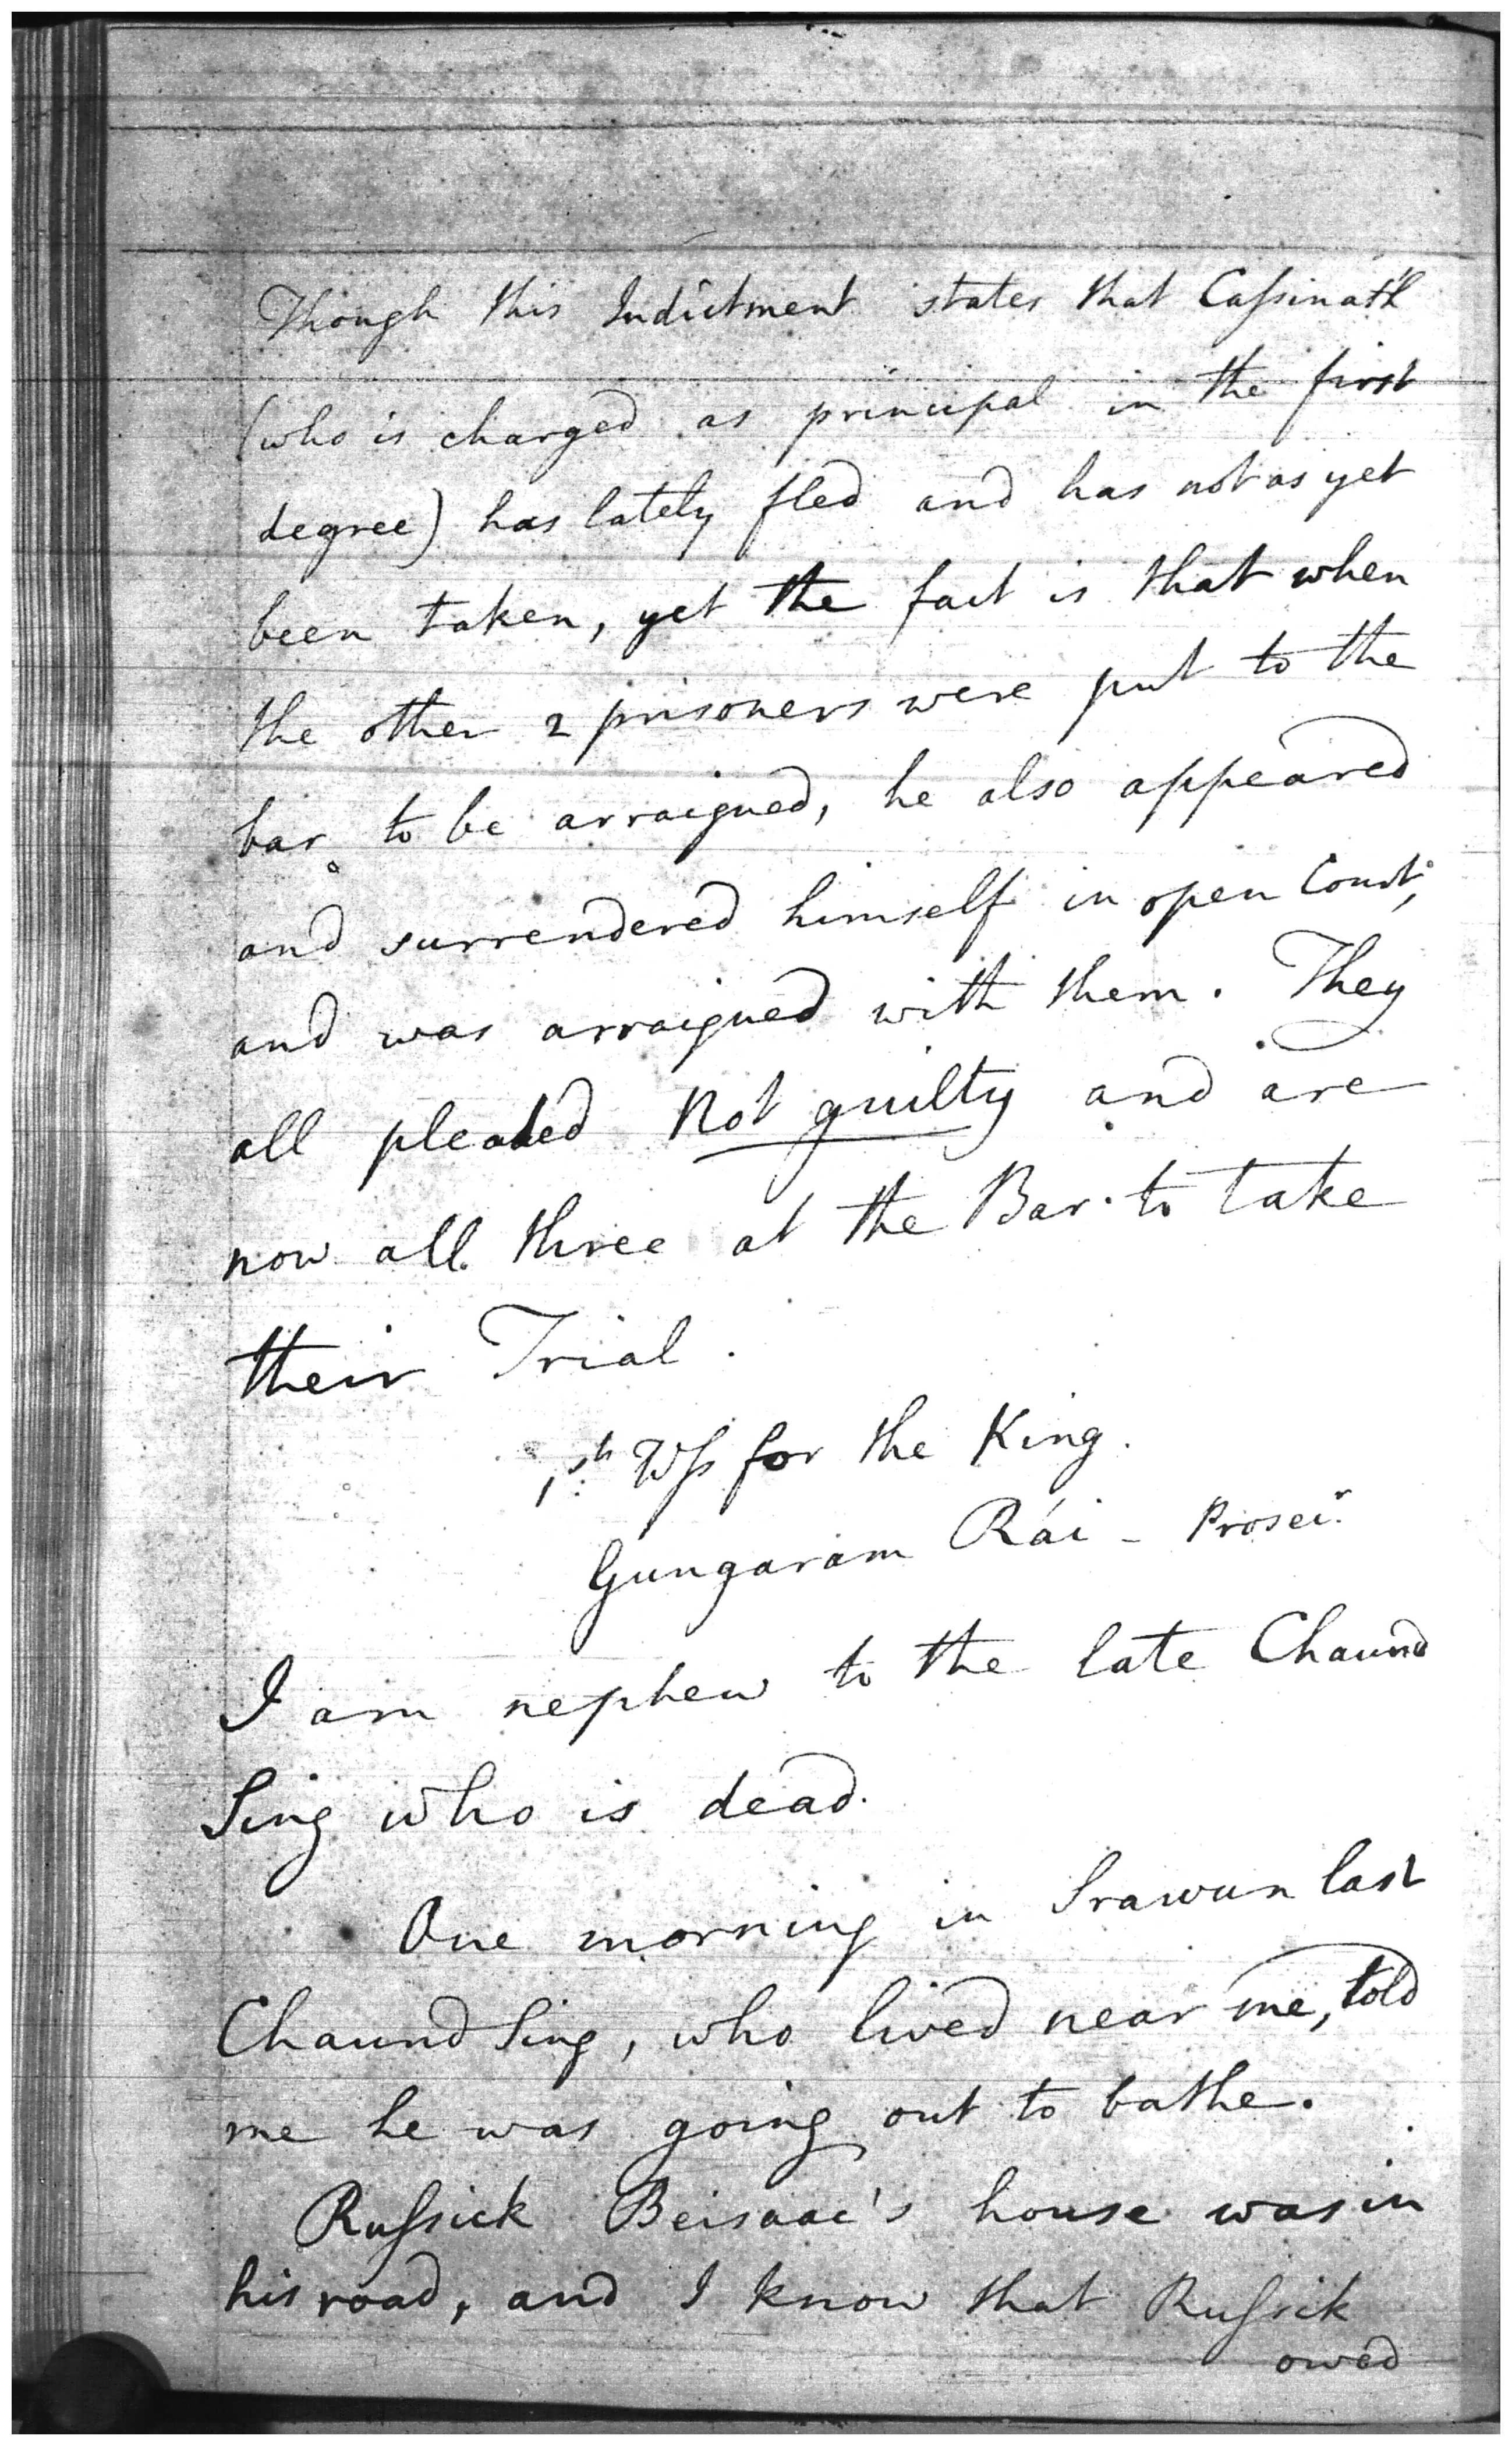 Though this Indictment states that Caſsinath
(who is charged as principal in the first
degree) has lately fled and has not as yet
been taken, yet the fact is that when
the other 2 prisoners were put to the
bar to be arraigned, he also appeared
and surrendered himself in open Court;
and was arraigned with them. They
all pleaded Not guilty and are
now all three at the Bar to take
their Trial.
1st Wſs for the King.
Gungaram Rái - Prosecr.
I am nephew to the late Chaund
Sing who is dead.
One morning in Srawun last
Chaund Sing, who lived near me, told
me he was going out to bathe.
Ruſsick Beisaac's house was in
his road, and I know that Ruſsik
owed